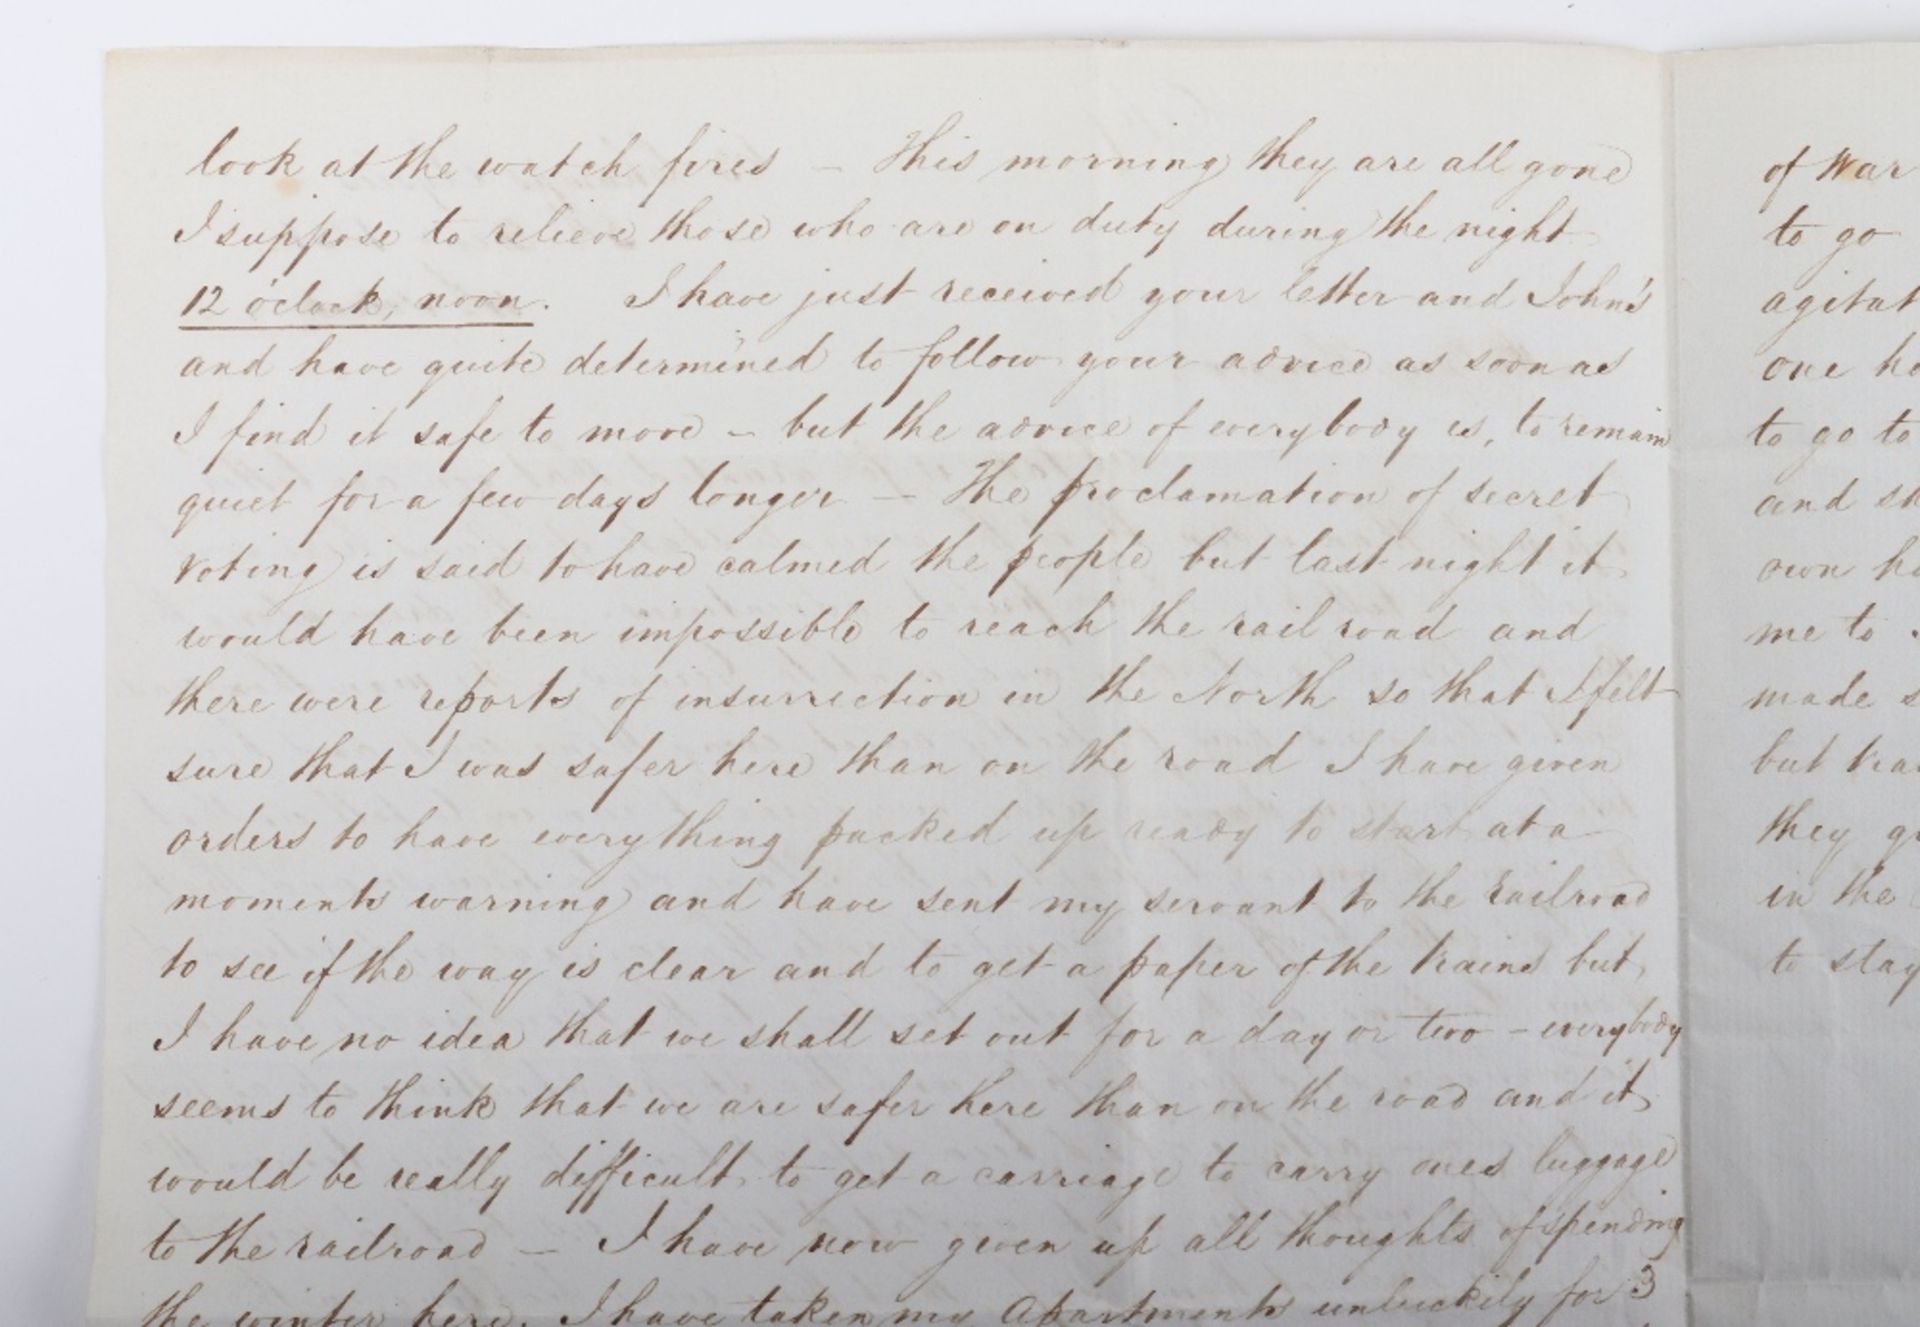 look at the watch fires – This morning they are all gone
I suppose to relieve those who are on duty during the night
12 o'clock, noon. I have just received your letter and John's
and have quite determined to follow your advice as soon as
I find it safe to move – but the advice of everybody is, to remain
quiet for a few days longer – The proclamation of secret
voting is said to have calmed the people but last night it
would have been impossible to reach the rail road and
there were reports of insurrection in the North so that I felt
sure that I was safer here than on the road I have given
orders to have everything packed up ready to start at a
moments warning and have sent my servant to the railroad
to see if the way is clear and to get a paper of the trains but
I have no idea that we shall set out for a day or two – everybody
seems to think that we are safer here than on the road and it
would be really difficult to get a carriage to carry ones luggage
to the railroad – I have now given up all thoughts of spending
the winter here. I have taken my apartments unluckily for 3
of War
to go
agitat
one ho
to go to
and
own ho
me to
made s
but
they
in the
to stay